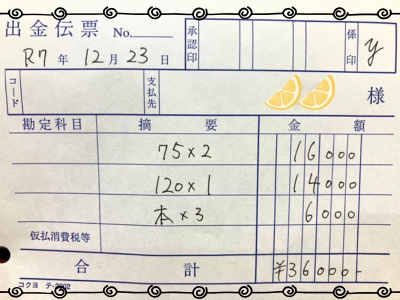 出金伝票 No.
承認印
係印 y
R7年 12月 23日
コード
支払先
様
勘定科目 摘要 金額
75×2 16000
120×1 14000
本×3 6000
仮払消費税等
合計 ¥36000-
コクヨ テ-2002